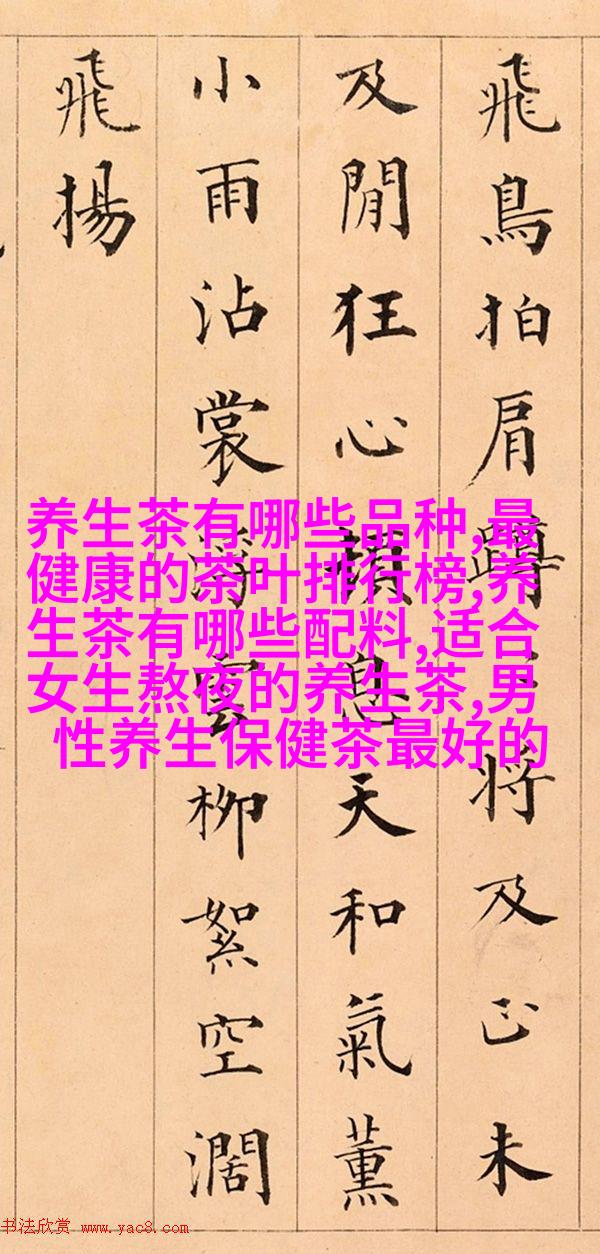 飛鳥拍肩蹲將及正未
及閒狂心息天和氣薰
小雨沾裳雲柳絮空闊
飛揚
养生茶有哪些品种,最
健康的茶叶排行榜,养
生茶有哪些配料,适合
女生熬夜的养生茶,男
性养生保健茶最好的
书法欣赏 www.yac8.com